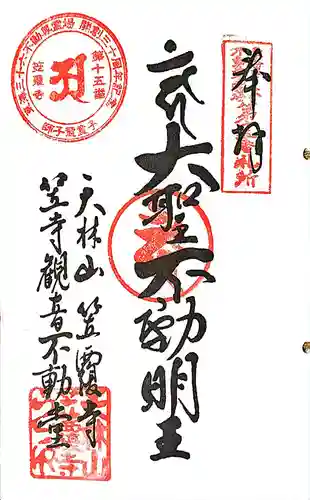 奉拝
大聖不動明王
天林山 笠覆寺
笠寺観音不動堂
東海三十六不動尊霊場 開創三十周年記念
第十五番
笠覆寺